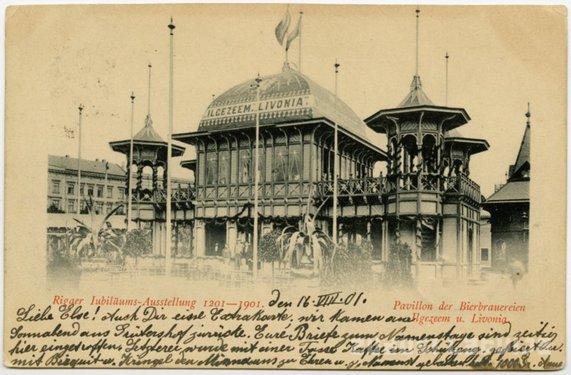 ILGEZEEM. LIVONIA.
Rigaer Jubiläums-Ausstellung 1201—1901.
den 16. VIII. 01.
Pavillon der Bierbrauereien
Ilgezeem u. Livonia.
Liebe Else! Auch Dir eine Extrakarte, wir kamen am
Sonnabend aus zurück. Eure Briefe zum Namenstage sind
hier eingetroffen, wurde mit einer Tasse Kaffee
mit Bisquit u. Kringel zu Ehren